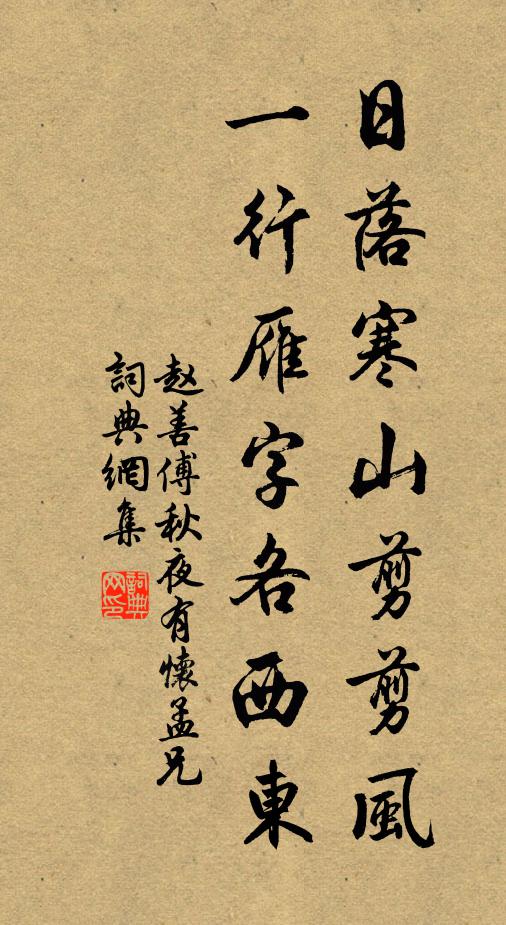 日落寒山剪剪風
一行雁字各西東
赵善傅秋夜有懷孟兄
詞典網集
詞典网印